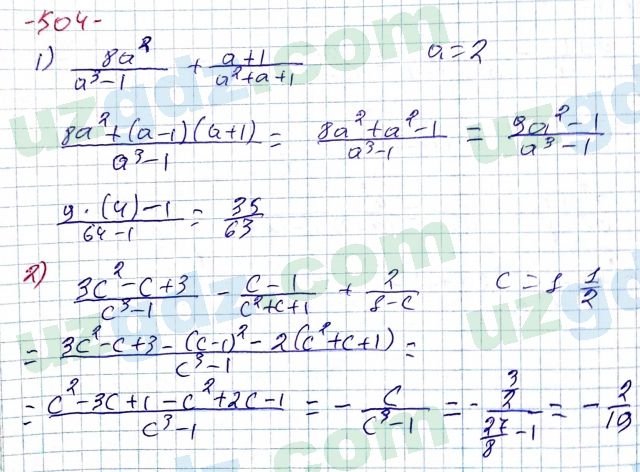 -504-
1) \frac{8a^2}{a^3-1} + \frac{a+1}{a^2+a+1} a=2
\frac{8a^2+(a-1)(a+1)}{a^3-1} = \frac{8a^2+a^2-1}{a^3-1} = \frac{9a^2-1}{a^3-1}
\frac{9·(4)-1}{64-1} = \frac{35}{63}
2) \frac{3c^2-c+3}{c^3-1} - \frac{c-1}{c^2+c+1} + \frac{2}{1-c} c=1\frac{1}{2}
= \frac{3c^2-c+3-(c-1)^2-2(c^2+c+1)}{c^3-1} =
= \frac{c^2-3c+1-c^2+2c-1}{c^3-1} = -\frac{c}{c^3-1} = -\frac{\frac{3}{2}}{\frac{27}{8}-1} = -\frac{2}{19}
uzgdz.com
uzgdz.com
uzgdz.com
uzgdz.com